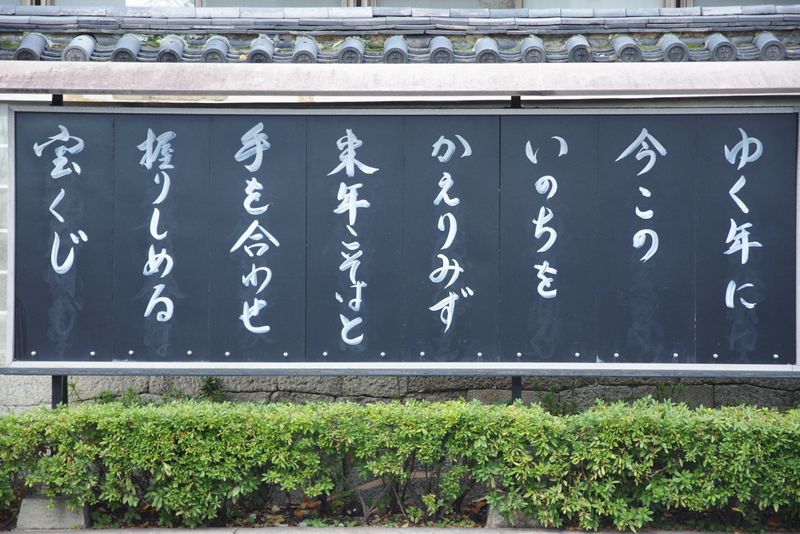 ゆく年に
今この
いのちを
かえりみず
来年こそはと
手を合わせ
握りしめる
宝くじ